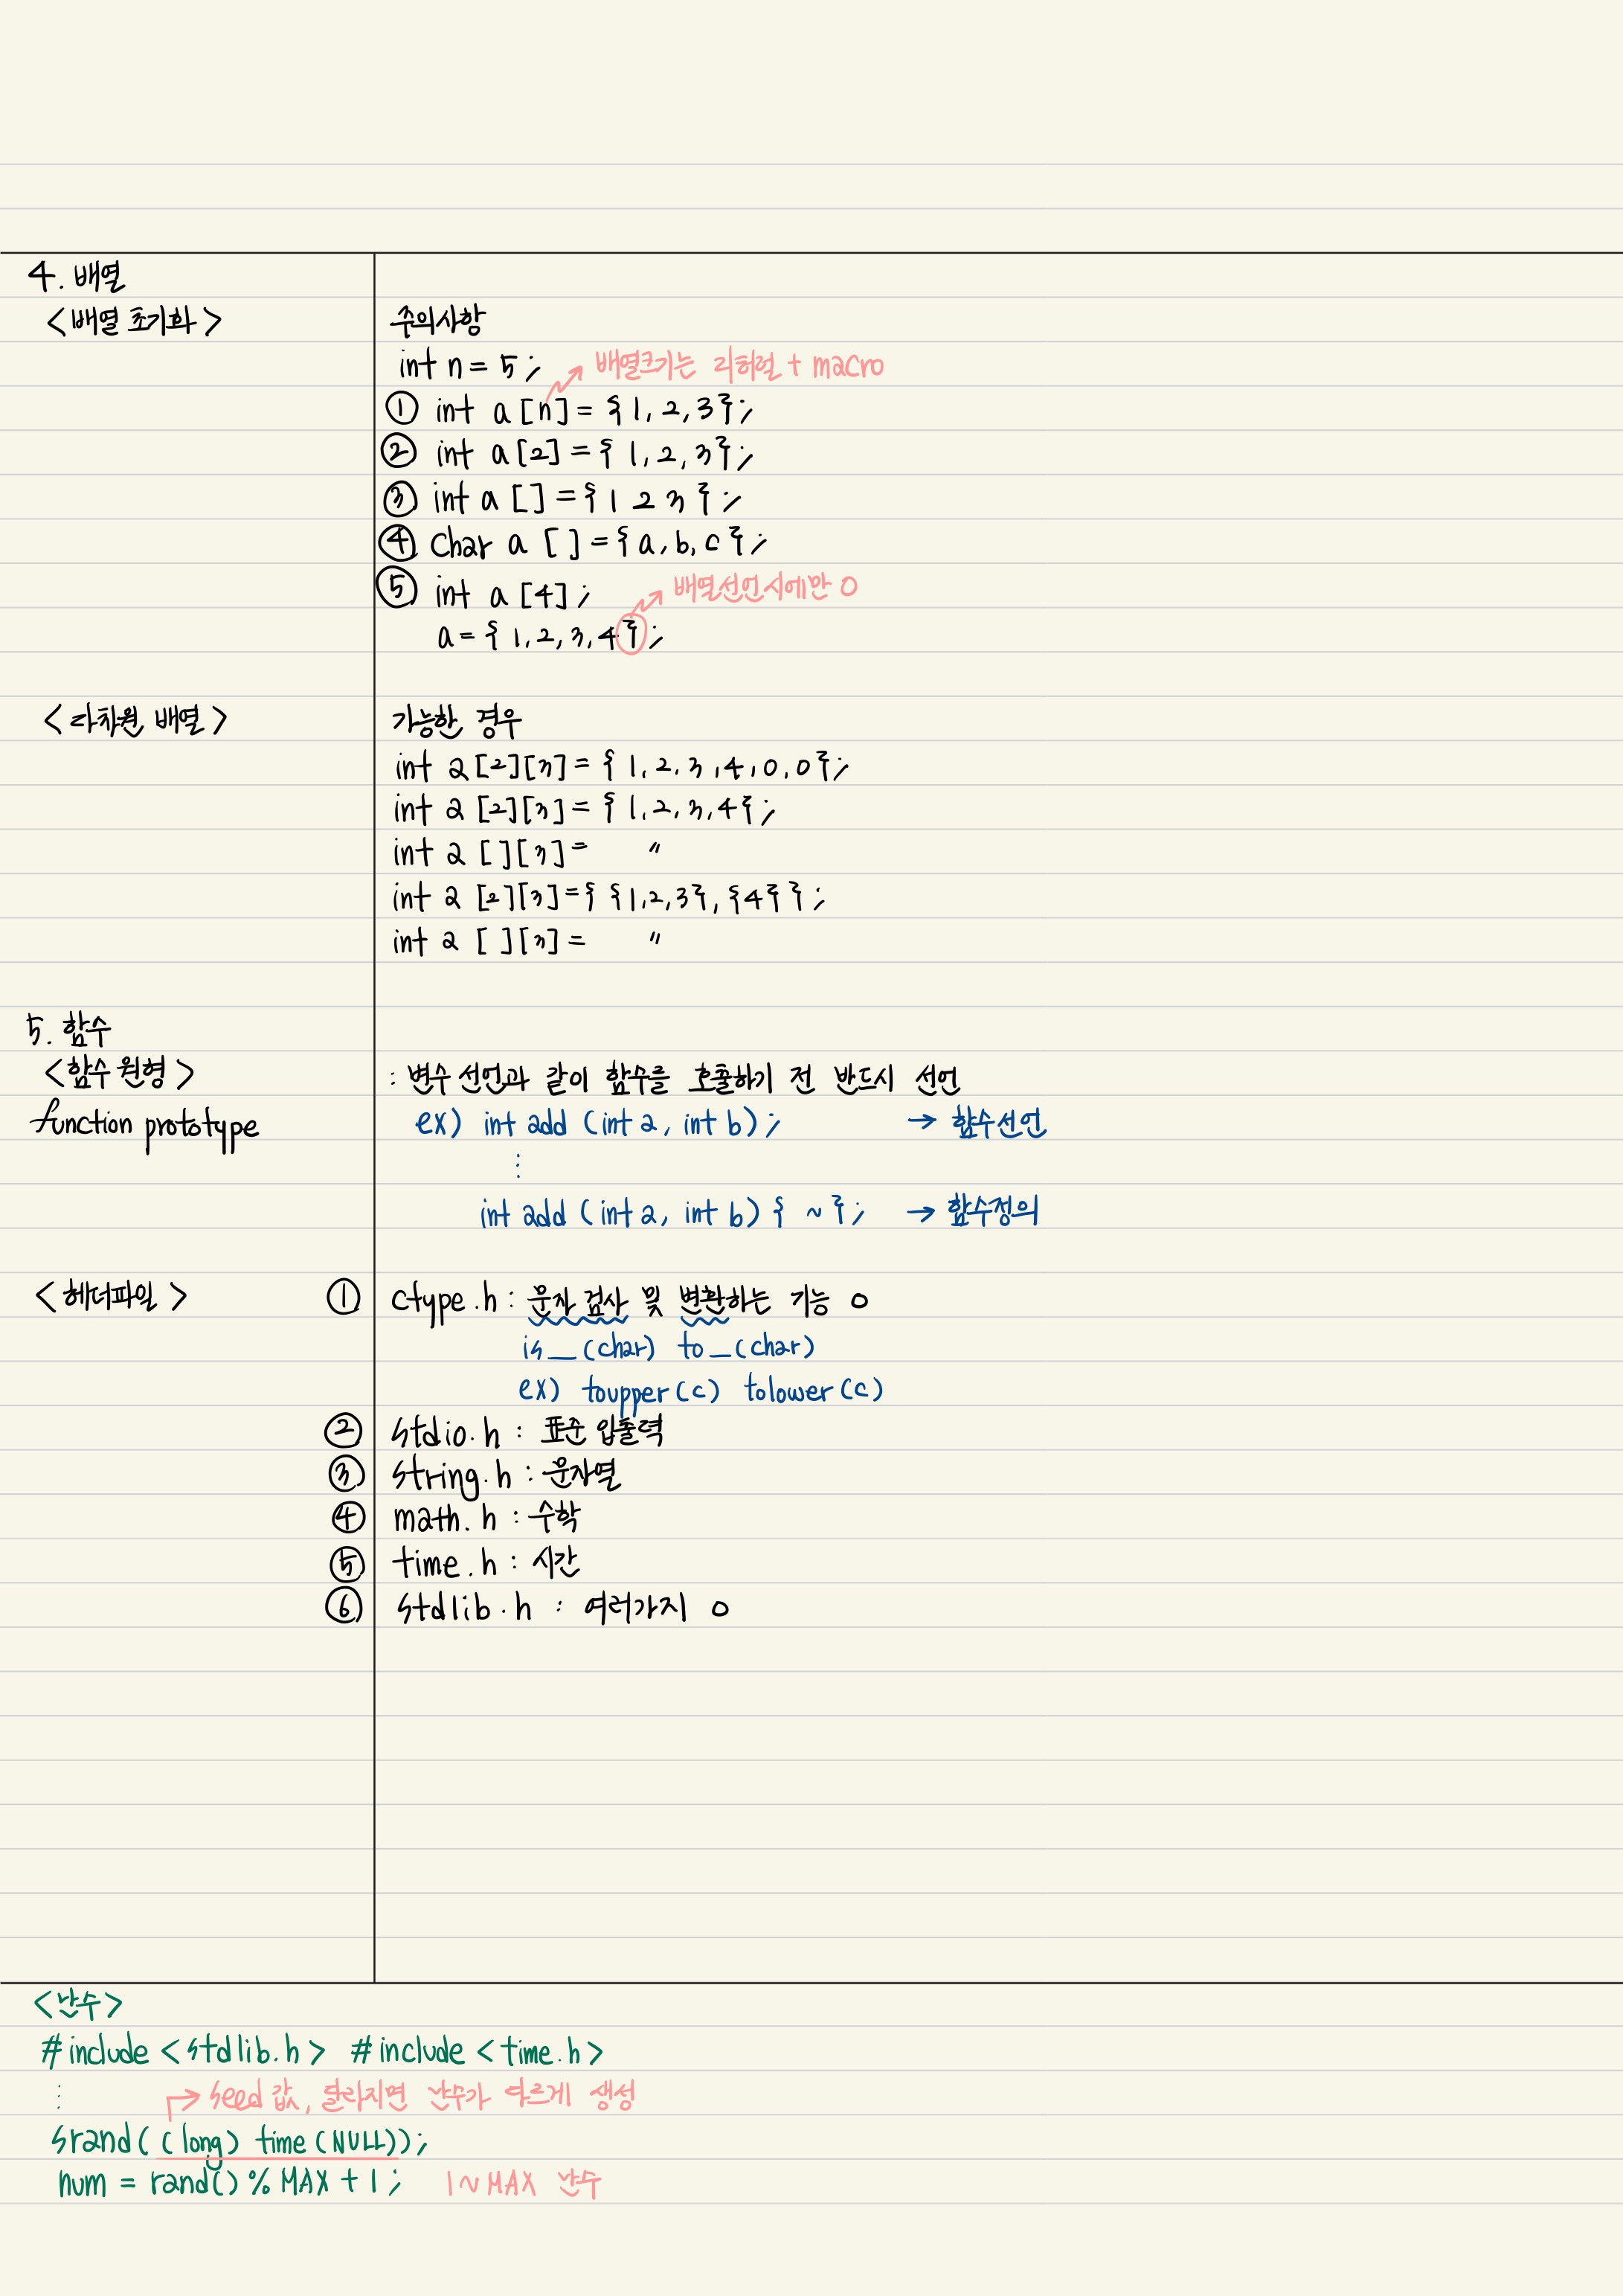 4. 배열
<배열 초기화>
주의사항
int n = 5;
배열크기는 리허럴 + macro
① int a[n] = {1, 2, 3};
② int a[2] = {1, 2, 3};
③ int a [] = {1 2 3};
④ char a [ ] = {a, b, c};
⑤ int a [4];
배열선언시에만 O
a = {1, 2, 3, 4};
<다차원 배열>
가능한 경우
int a[2][3] = {1, 2, 3, 4, 0, 0};
int a [2][3] = {1, 2, 3, 4};
int a [ ][3] = "
int a [2][3] = { {1, 2, 3}, {4} };
int a [ ][3] = "
5. 함수
<함수 원형>
function prototype
: 변수 선언과 같이 함수를 호출하기 전 반드시 선언
ex) int add (int a, int b); → 함수선언
⋮
int add (int a, int b) { ~ }; → 함수정의
<헤더파일>
① ctype.h : 문자 검사 및 변환하는 기능 O
is__(char) to_(char)
ex) toupper(c) tolower(c)
② stdio.h : 표준 입출력
③ string.h : 문자열
④ math.h : 수학
⑤ time.h : 시간
⑥ stdlib.h : 여러가지 O
<난수>
#include <stdlib.h> #include <time.h>
⋮
seed 값, 달라지면 난수가 다르게 생성
srand( (long) time (NULL));
num = rand() % MAX + 1; 1~MAX 난수